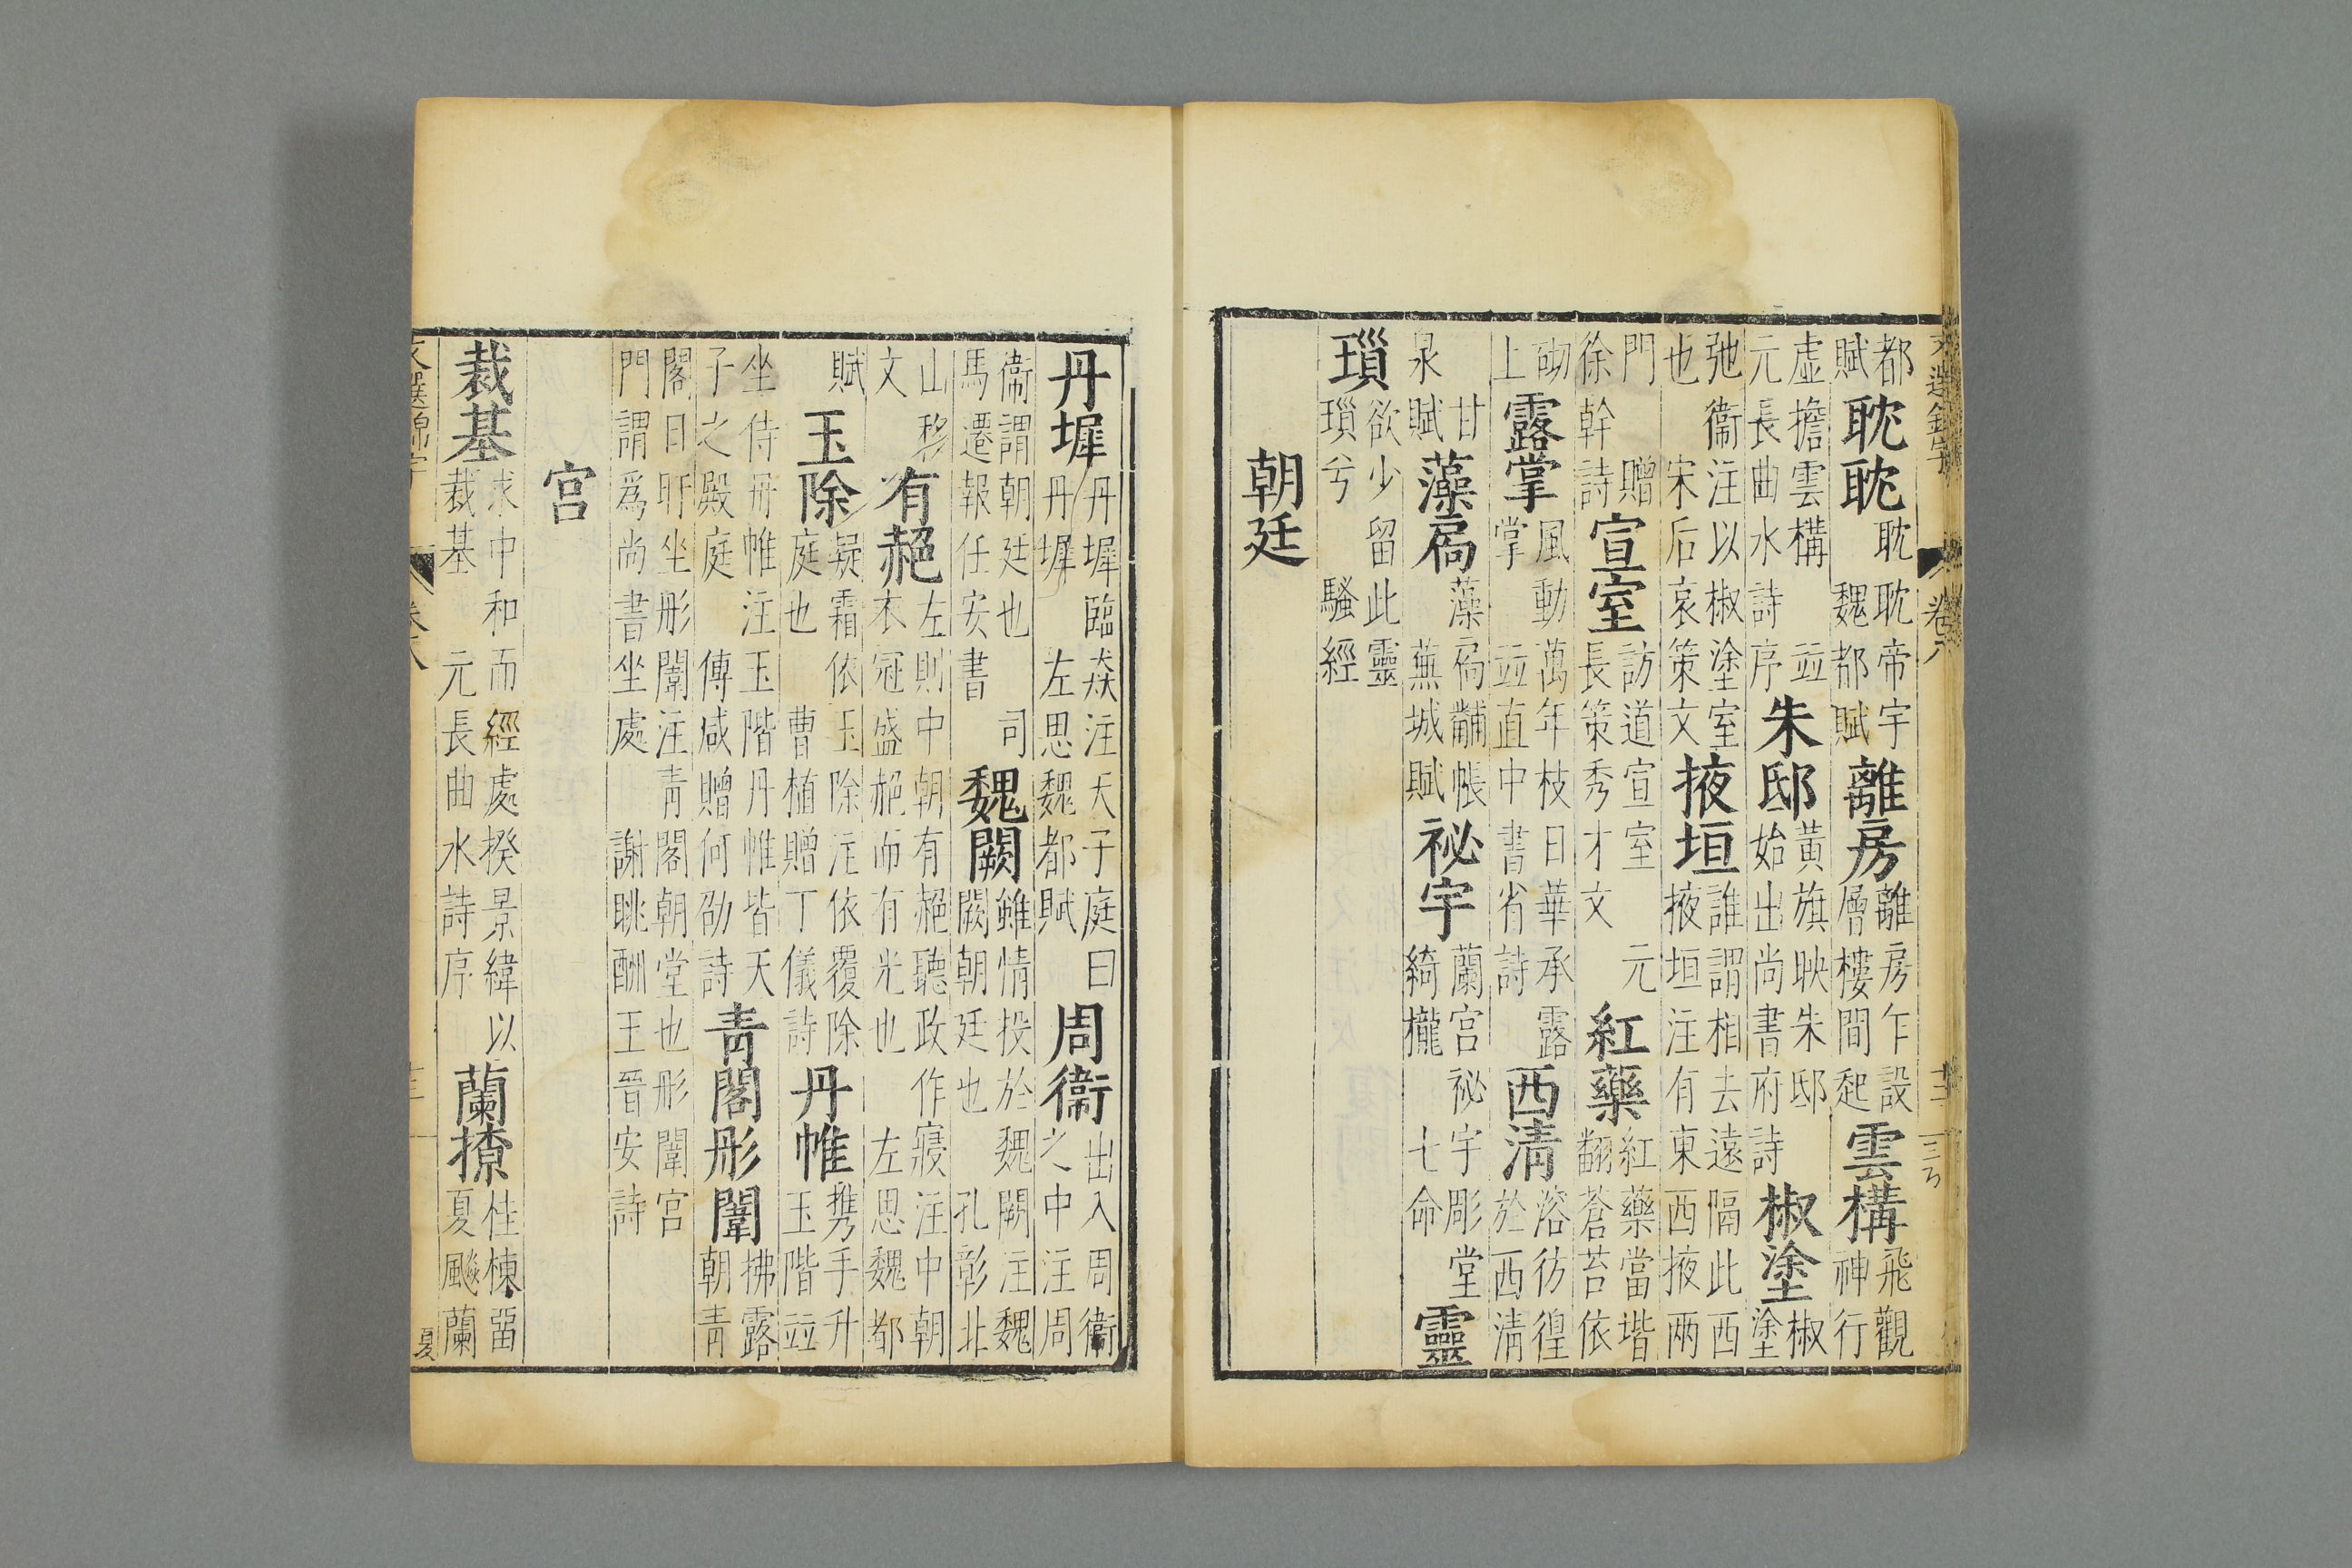 文選錦字 卷八 十二
都賦耽耽耽耽帝宇魏都賦離房離房乍設層樓間起雲構飛觀神行
虛擔雲構 並元長曲水詩序朱邸黃旗映朱邸始出尚書府詩椒塗椒塗
弛衞注以椒塗室也 宋后哀策文掖垣誰謂相去遠隔此西掖垣注有東西掖兩
門 贈徐幹詩宣室訪道宣室 元長策秀才文紅藥紅藥當堦翻蒼苔依
砌上露掌風動萬年枝日華承露掌 並直中書省詩西清溶彷徨於西清
甘泉賦藻扃藻扃黼帳蕪城賦祕宇蘭宮祕宇彫堂綺櫳 七命靈
瑣欲少留此靈瑣兮 騷經
朝廷
丹墀丹墀臨猋注天子庭曰丹墀 左思魏都賦周衞出入周衞之中注周
衞謂朝廷也 司馬遷報任安書魏闕雖情投於魏闕注魏闕朝廷也 孔彰北
山移文有赩左則中朝有赩聽政作寢注中朝衣冠盛赩而有光也 左思魏都
賦玉除凝霜依玉除注依覆除庭也 曹植贈丁儀詩丹帷携手升玉階並
坐侍丹帷注玉階丹帷皆天子之殿庭 傅咸贈何劭詩青閣彤闈拂露朝青
閣日旰坐彤闈注青閣朝堂也彤闈宮門謂爲尚書坐處 謝眺酬王晋安詩
宮
裁基求中和而經處揆景緯以裁基 元長曲水詩序蘭橑桂棟畱夏飈蘭